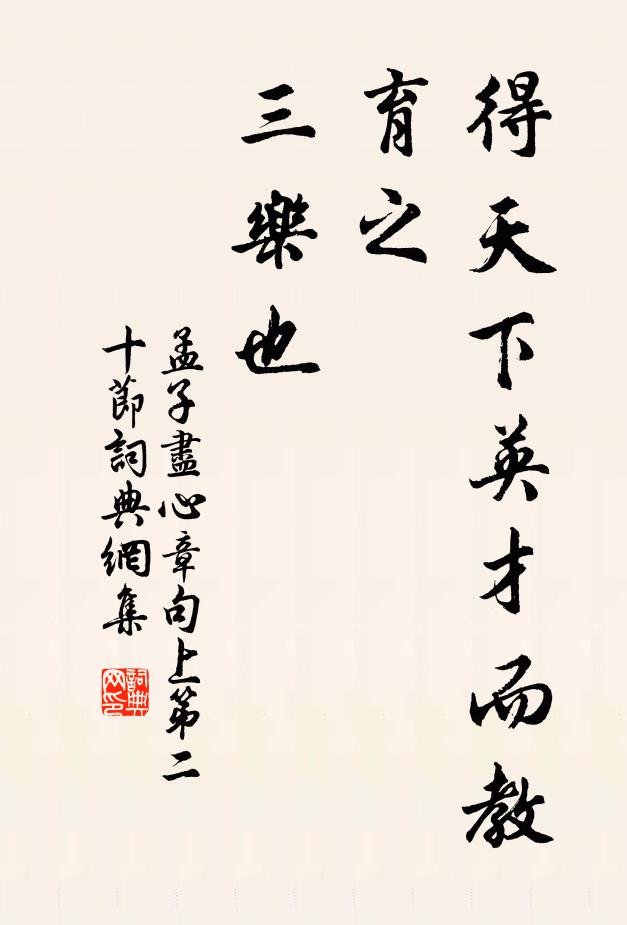 得天下英才而教
育之
三樂也
孟子盡心章句上第二
十節詞典網集
詞典网印